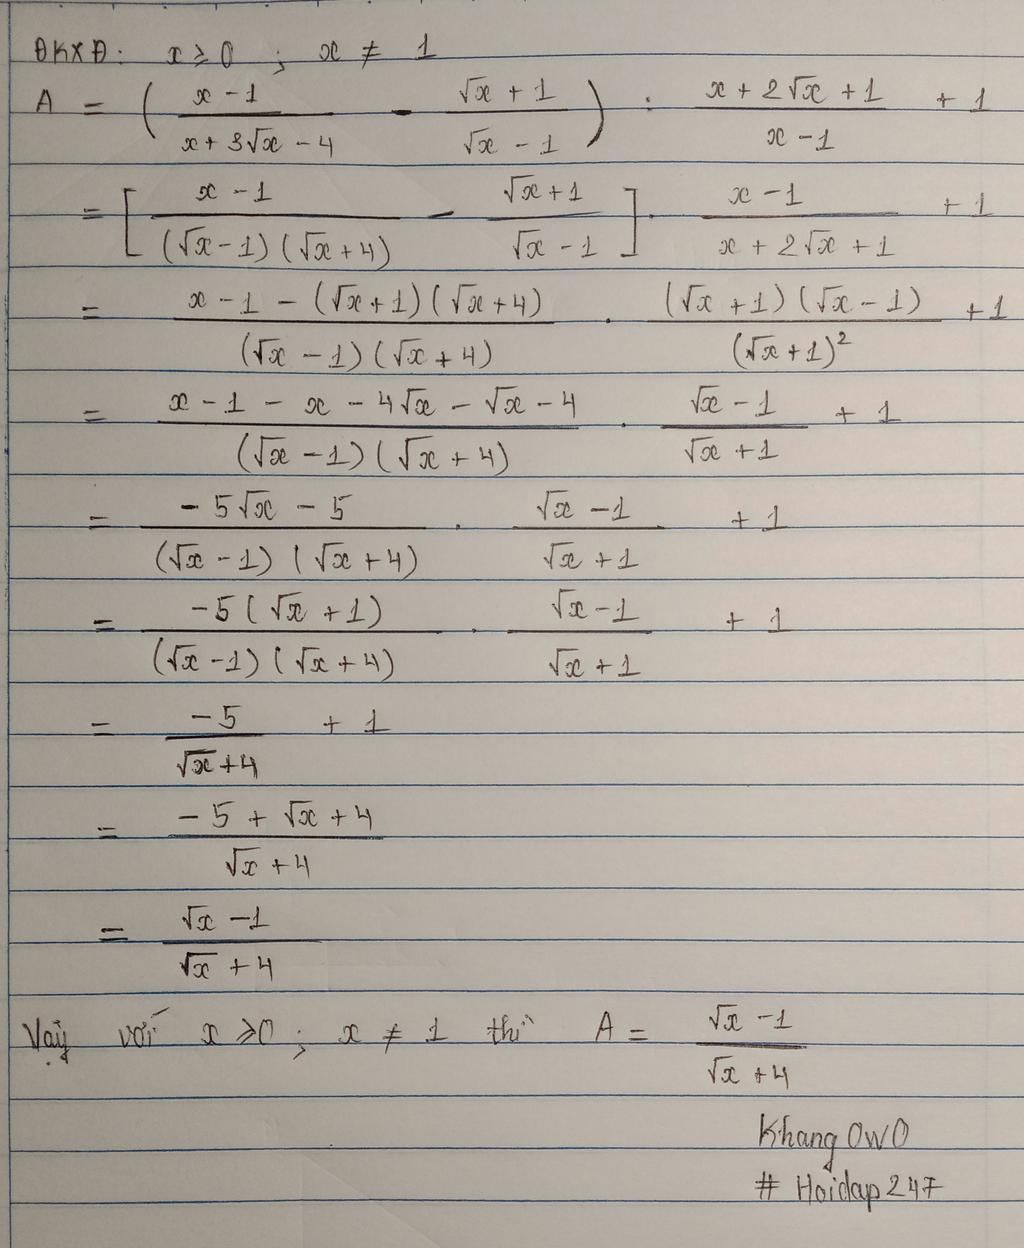 ĐKXĐ: x ≥ 0 ; x ≠ 1
A = ( (x - 1)/(x + 3√x - 4) - (√x + 1)/(√x - 1) ) : (x + 2√x + 1)/(x - 1) + 1
= [ (x - 1)/((√x - 1)(√x + 4)) - (√x + 1)/(√x - 1) ] . (x - 1)/(x + 2√x + 1) + 1
= (x - 1 - (√x + 1)(√x + 4))/((√x - 1)(√x + 4)) . ((√x + 1)(√x - 1))/((√x + 1)²) + 1
= (x - 1 - x - 4√x - √x - 4)/((√x - 1)(√x + 4)) . (√x - 1)/(√x + 1) + 1
= (-5√x - 5)/((√x - 1)(√x + 4)) . (√x - 1)/(√x + 1) + 1
= (-5(√x + 1))/((√x - 1)(√x + 4)) . (√x - 1)/(√x + 1) + 1
= (-5)/(√x + 4) + 1
= (-5 + √x + 4)/(√x + 4)
= (√x - 1)/(√x + 4)
Vậy với x ≥ 0 ; x ≠ 1 thì A = (√x - 1)/(√x + 4)
Khang OwO
# Hoidap247